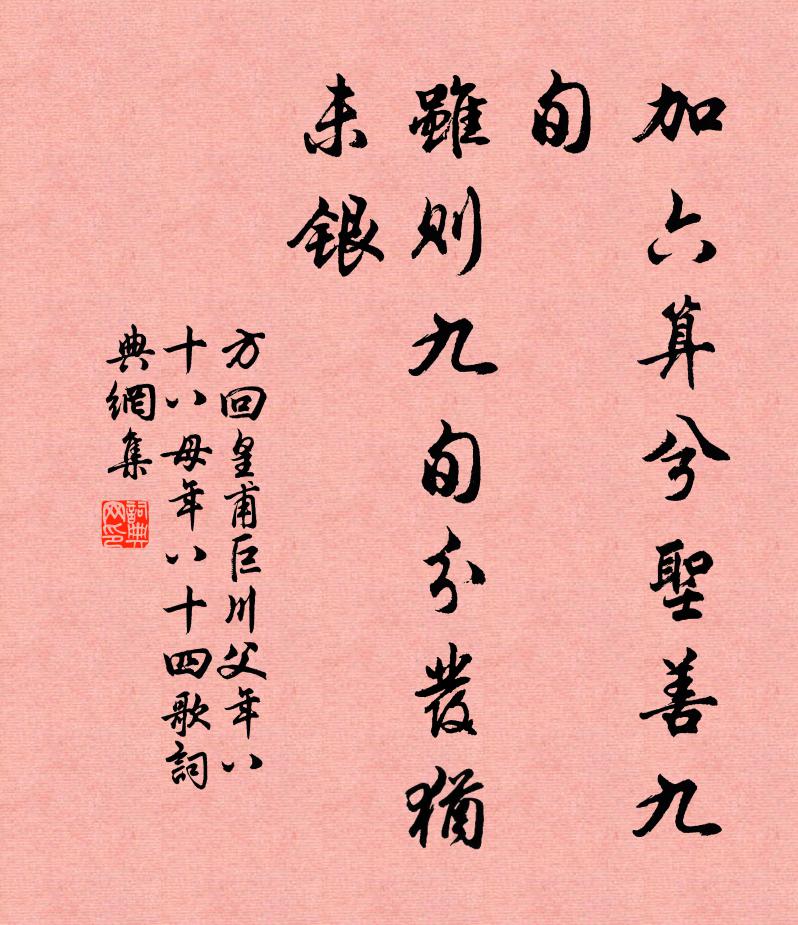 加六算兮聖善九
旬
雖則九旬兮髮猶
未銀
方回皇甫巨川父年八
十八母年八十四歌詞
典網集
詞典網印